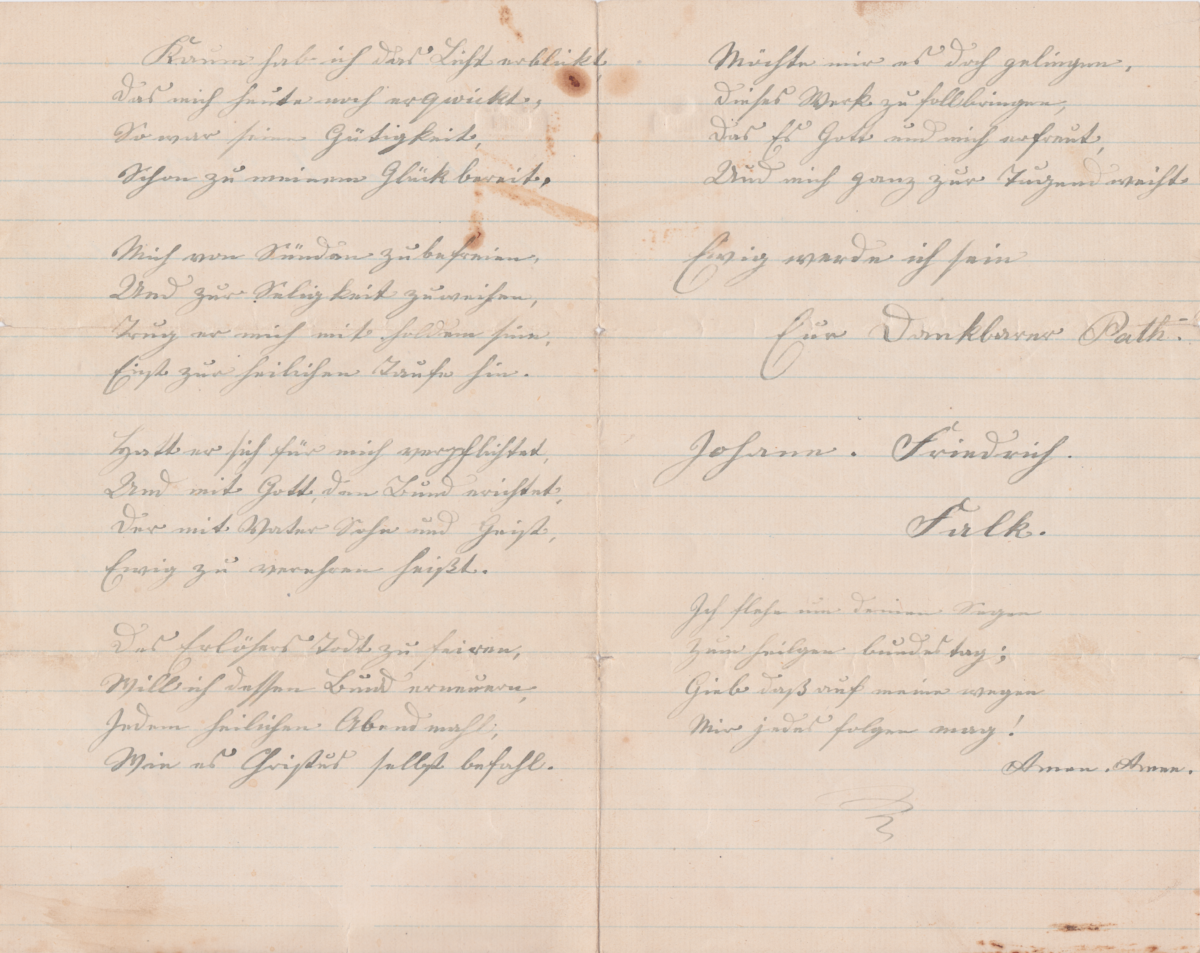 Kaum hab ich das Licht erblickt,
Das mich heute noch erqwickt,
So war seine Gütigkeit,
Schon zu meinem Glück bereit,
Mich von Sünden zu befreien,
Und zur Seligkeit zuweihen,
Trug er mich mit holdem sinn,
Einst zur heilichen Taufe hin.
Hatt er sich für mich verpflichtet,
Und mit Gott, den Bund erichtet,
Der mit Vater Sohn und Geist,
Ewig zu verehren heißt.
Des Erlösers Todt zu feiren,
Will ich dessen Bund erneuern,
Jedem heilichen Abendmahl,
Wie es Christus selbst befahl.
Möchte mir es doch gelingen,
Dieses Werk zu follbringen,
Das Es Gott und mich erfreut,
Und mich ganz zur Tugend weiht
Ewig werde ich sein
Eur Dankbarer Path.
Johann. Friedrich.
Falk.
Ich flehe um deinen Segen
Zum heilgen bundestag;
Gieb daß auf meine wegen
Mir jedes folgen mag!
Amen. Amen.